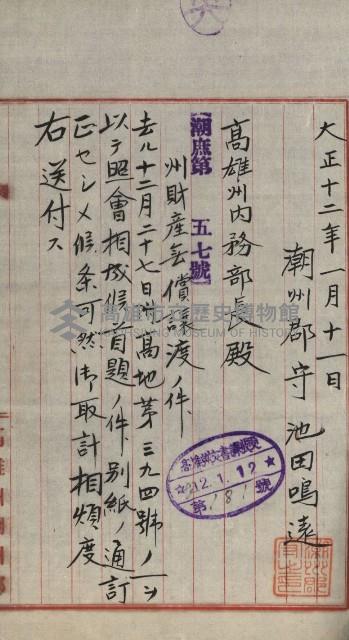 大正十二年一月十一日
潮州郡守 池田鳴遠
高雄州内務部長殿
潮庶第 五七號
州財産無償讓渡ノ件
去ル十二月二十七日附高地第三九四號ノ一ヲ
以テ照會相成候首題ノ件別紙ノ通訂
正セシメ候条可然御取計相煩度
右送付ス
12.1.12
第181號
高雄市立歷史博物館
KAOHSIUNG MUSEUM OF HISTORY